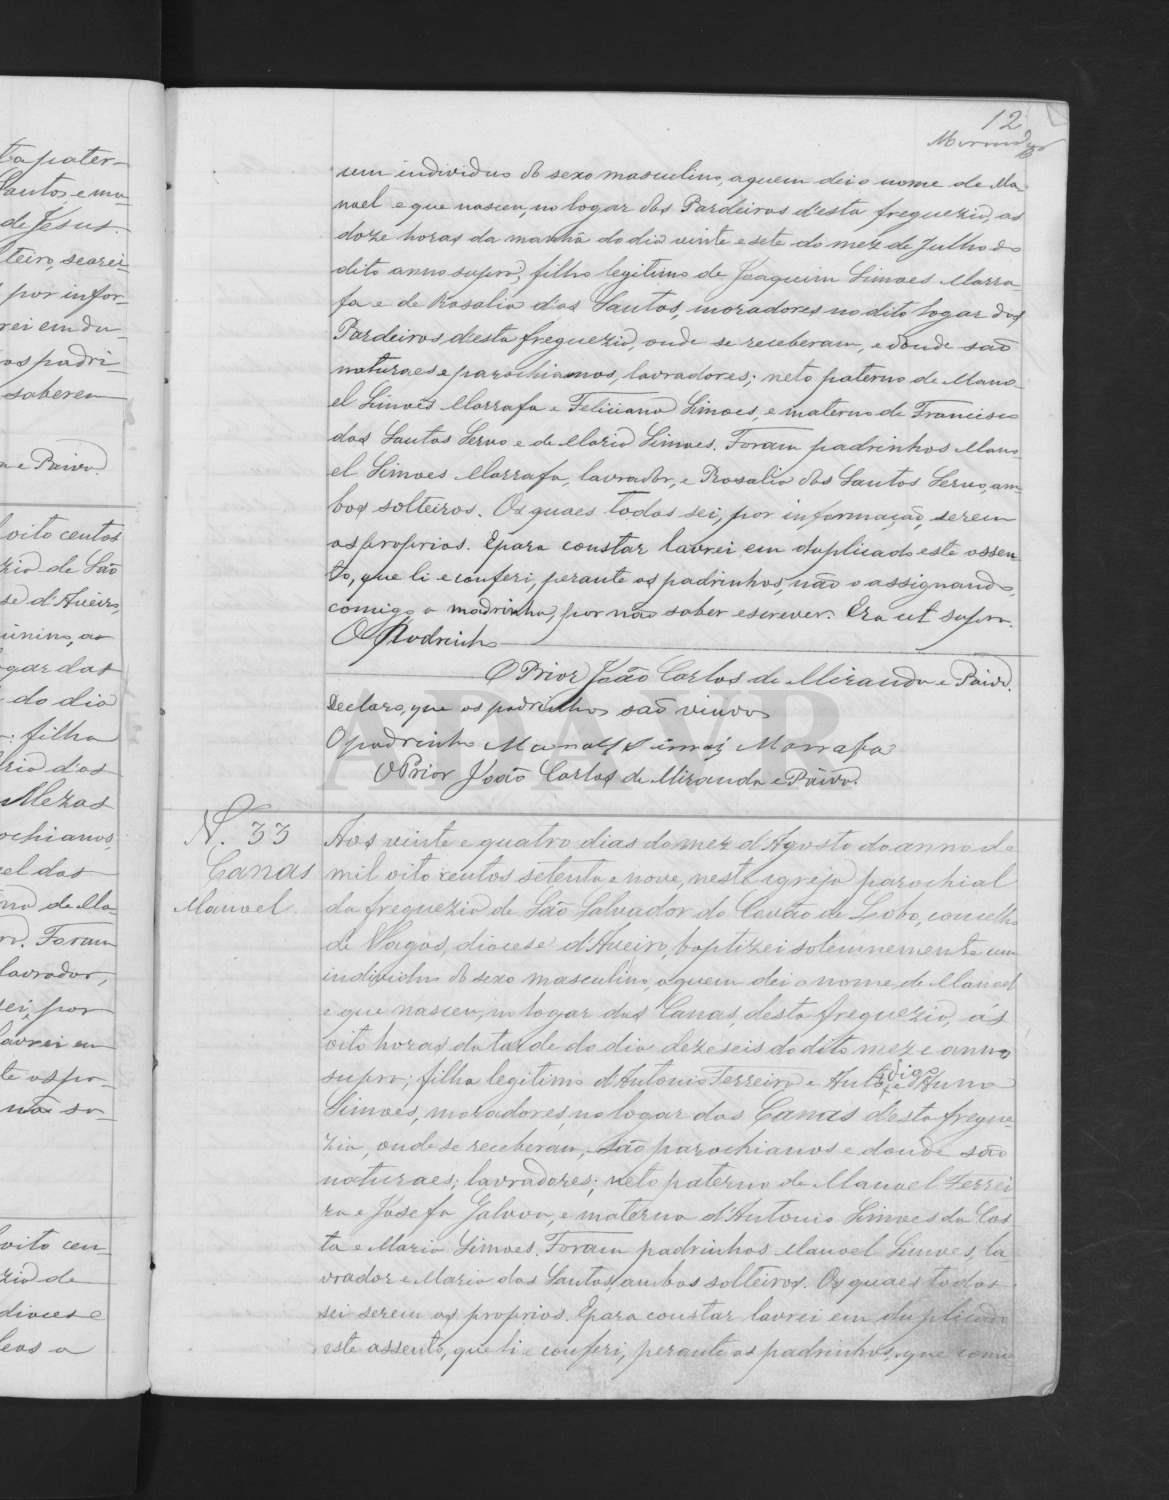 12
um individuo do sexo masculino, a quem dei o nome de Ma-
noel e que nasceu, no logar dos Pardeiros d'esta freguezia, as
doze horas da manhã do dia vinte e sete do mez de Julho do
dito anno supra, filho legitimo de Joaquim Simoes Marra-
fa e de Rosalia dos Santos, moradores no dito logar dos
Pardeiros, d'esta freguezia, onde se receberam, e donde são
naturaes e parochianos, lavradores; neto paterno de Mano-
el Simoes Marrafa e Feliciana Simoes, e materno de Francisco
dos Santos Servo e de Maria Simoes. Foram padrinhos Mano-
el Simoes Marrafa, lavrador, e Rosalia dos Santos Servo, am-
bos solteiros. Os quaes todos sei, por informação, serem
os proprios. E para constar lavrei em duplicado este assen-
to, que li e conferi, perante os padrinhos, não o assignando,
comigo a madrinha, por não saber escrever. Era ut supra.
O Padrinho
O Prior João Carlos de Miranda e Paiva.
Declaro, que os padrinhos são viuvos
O padrinho Manoel Simois Marrafa
O Prior João Carlos de Miranda e Paiva.
N. 33
Canas
Manoel
Aos vinte e quatro dias do mez d'Agosto do anno de
mil oito centos setenta e nove, nesta igreja parochial
da freguezia de São Salvador do Covão do Lobo, concelho
de Vagos, diocese d'Aveiro, baptizei solemnemente um
individuo do sexo masculino, a quem dei o nome, de Manoel
e que nasceu, no logar das Canas, desta freguezia, ás
oito horas da tarde do dia dezeseis do dito mez e anno
supra; filho legitimo d'Antonio Ferreira e Anna
Simoes, moradores, no logar das Canas d'esta fregue-
zia, onde se receberam, são parochianos e donde são
naturaes; lavradores; neto paterno de Manoel Ferrei
ra e Josefa Galvoa, e materno d'Antonio Simoes da Cos
ta e Maria Simoes. Foram padrinhos Manoel Simoes, la-
vrador e Maria dos Santos, ambos solteiros. Os quaes todos
sei serem os proprios. E para constar lavrei em duplicado
este assento, que li e conferi, perante os padrinhos, que comi